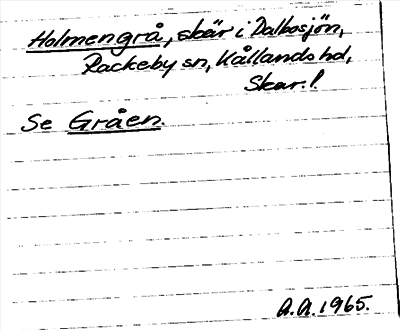 Holmengrå, skär i Dalbosjön,
Rackeby sn, Kållands hd,
Skar. l.
Se Gråen.
A.A. 1965.